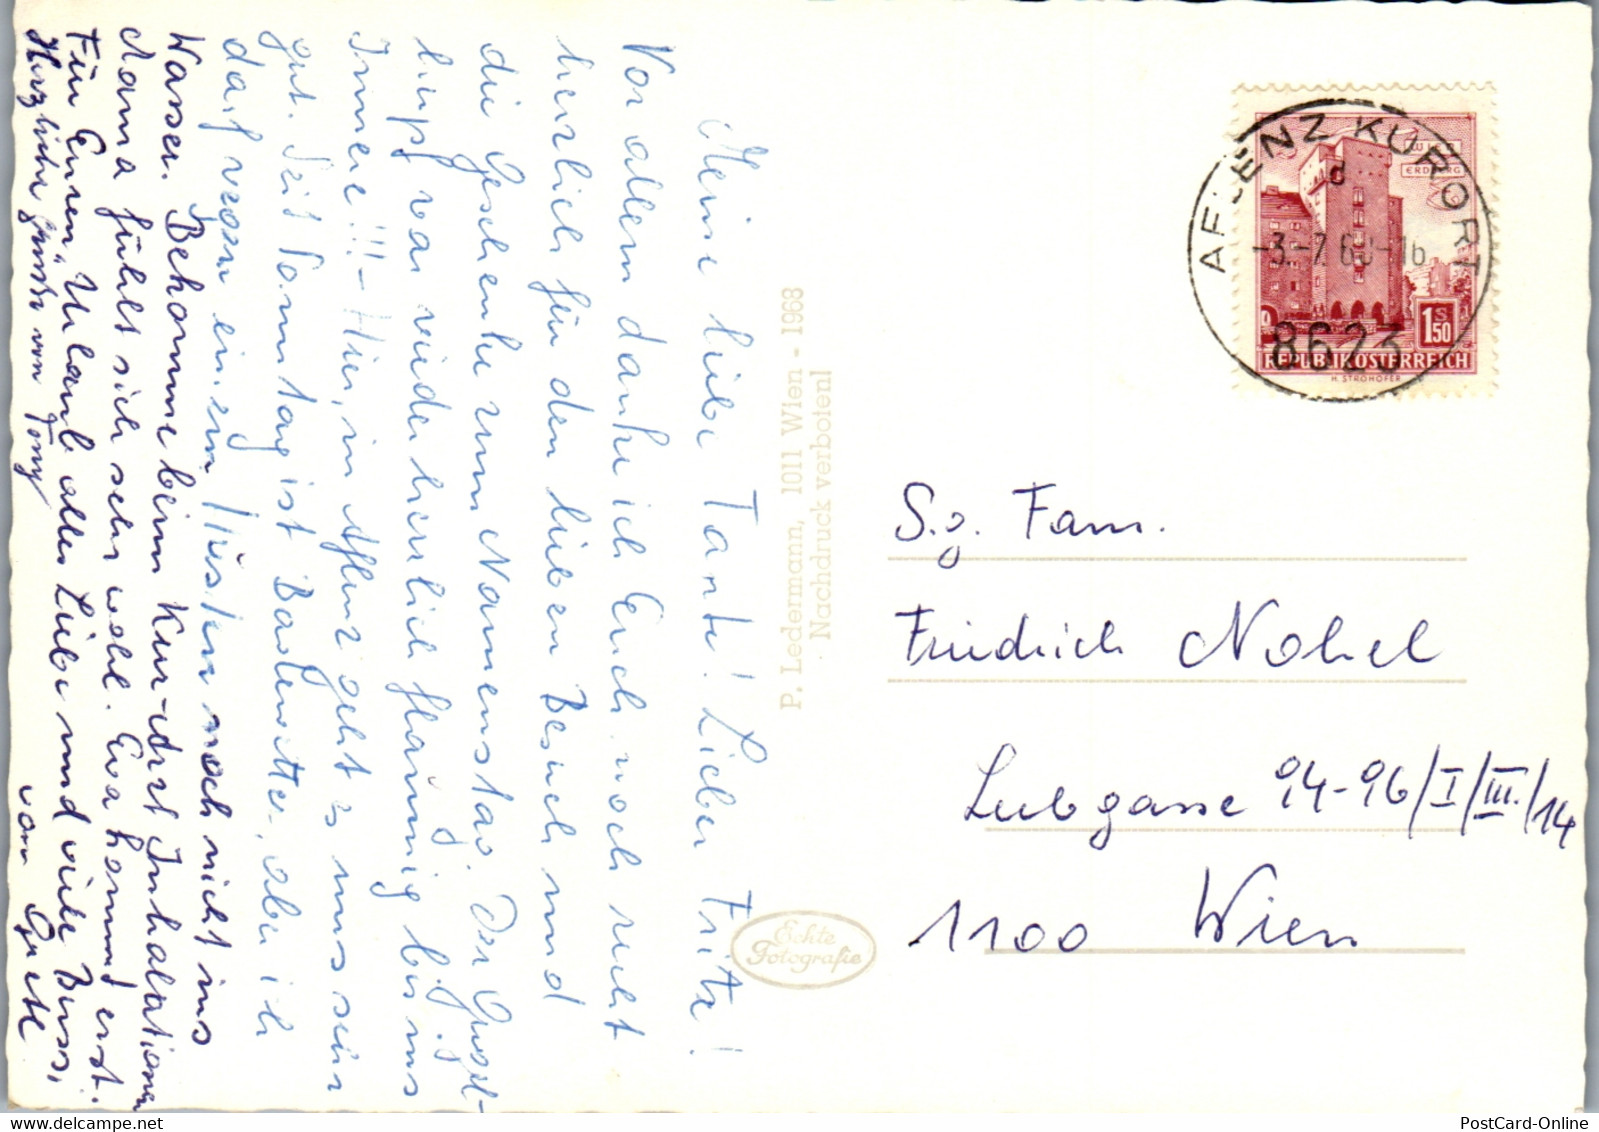 Meine liebe Tante! Lieber Fritz!
Vor allem danke ich Euch noch recht
herzlich für den lieben Besuch und
die Geschenke zum Namenstag. Der Gugl-
hupf war wieder herrlich flaumig bis ins
Innere!!! - Hier, in Aflenz geht es uns sehr
gut. Seit Samstag ist Badewetter, aber ich
darf wegen einem Hüsteln noch nicht ins
Wasser. Bekomme beim Kur-Arzt Inhalationen
Mama fühlt sich sehr wohl. Eva kommt erst.
Für Euren Urlaub alles Liebe und viele Bussi,
Herzliche Grüsse von Tony
von Gretl
P. Ledermann, 1011 Wien - 1968
Nachdruck verboten!
Echte
Fotografie
AFLENZ KURORT
d
-3.-7.6 -16
8623
WIEN
ERDBERG
1S50
REPUBLIK ÖSTERREICH
H. STROHOFER
S.g. Fam.
Friedrich Nohel
Leebgasse 94-96/I/III./14
1100 Wien
PostCard-Online